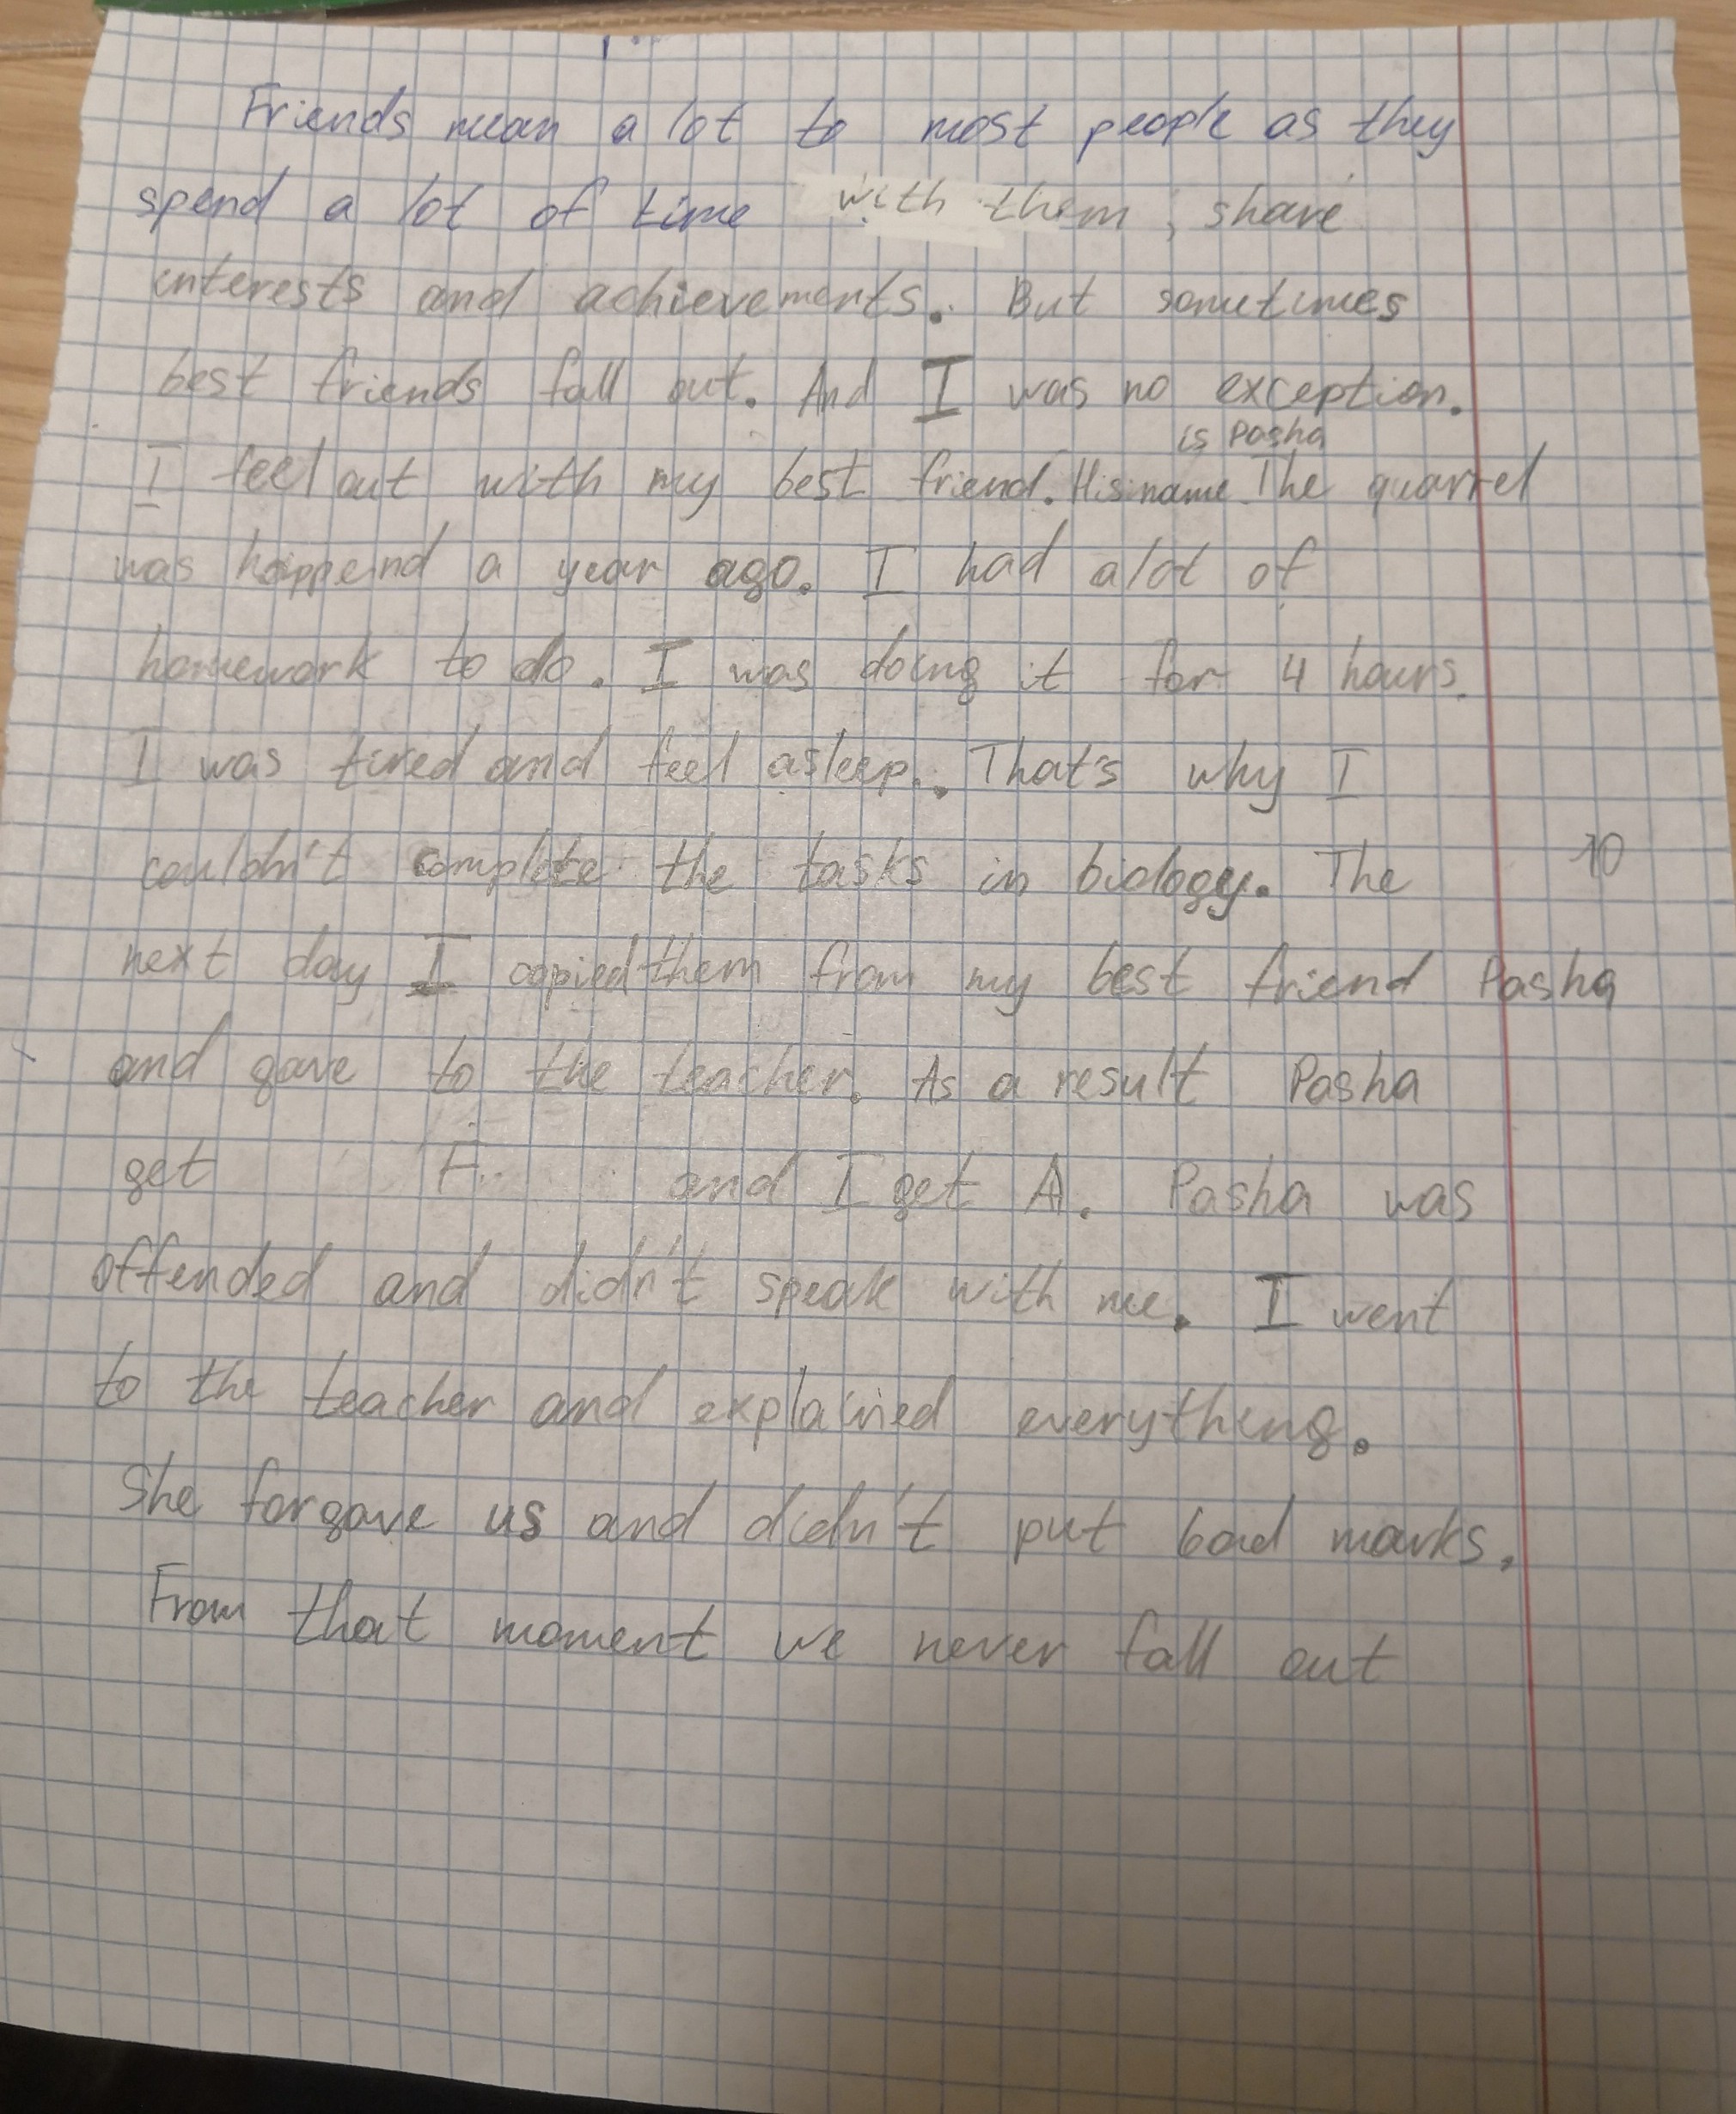 Friends mean a lot to most people as they
spend a lot of time with them, share
interests and achievements. But sometimes
best friends fall out. And I was no exception.
is Pasha
I feel out with my best friend. His name The quarrel
was happend a year ago. I had a lot of
homework to do. I was doing it for 4 hours.
I was tired and feel asleep. That's why I
couldn't complete the tasks in biology. The
10
next day I copied them from my best friend Pasha
and gave to the teacher. As a result Pasha
get F and I get A. Pasha was
offended and didn't speak with me. I went
to the teacher and explained everything.
She forgave us and didn't put bad marks.
From that moment we never fall out